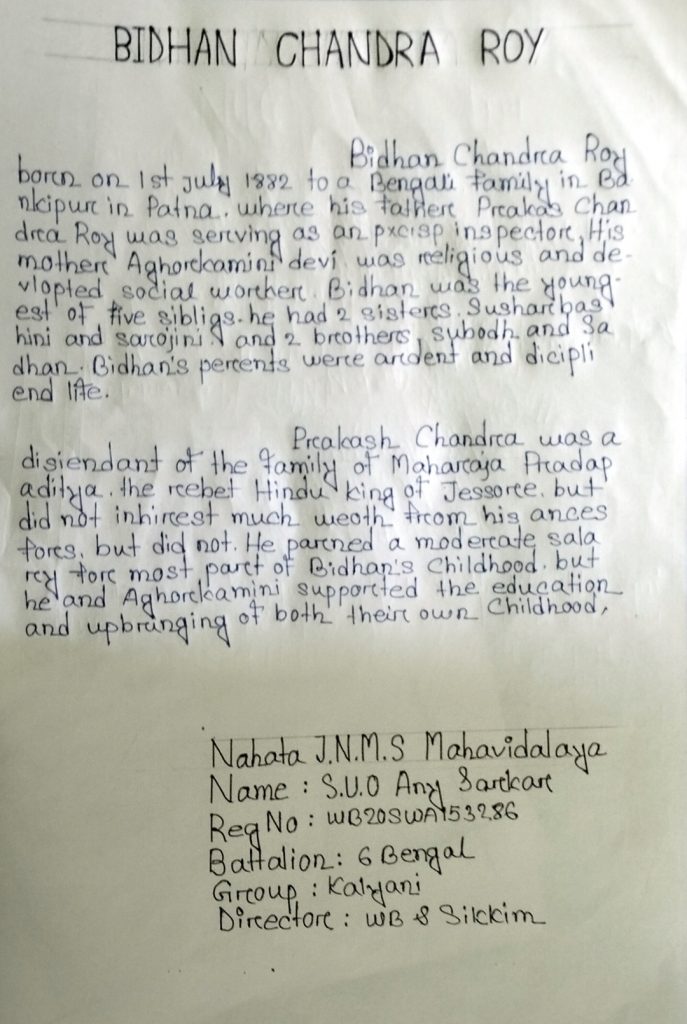 BIDHAN CHANDRA ROY
Bidhan Chandra Roy
born on 1st july 1882 to a Bengali family in Ba
nkipure in Patna. where his father Prakas Chan
dra Roy was serving as an pxcisp inspector, His
mother Aghorekamini devi was religious and de-
vlopted social worcher. Bidhan was the young-
est of five sibligs. he had 2 sisters. Susharbas
hini and sarojini and 2 brothers, subodh and Sa
dhan. Bidhan's percents were ardent and dicipli
end life.
Prakash Chandra was a
disiendant of the family of Maharaja Pradap
aditya. the rebet Hindu king of Jessore. but
did not inhirest much weoth from his ances
fores. but did not. He parned a moderate sala
ry fore most part of Bidhan's Childhood. but
he and Aghorekamini supported the education
and upbringing of both their own Childhood,
Nahata J.N.M.S Mahavidalaya
Name : S.U.O Any Sarkar
Reg No : WB20SWA153286
Battalion : 6 Bengal
Group : Kalyani
Director : WB & Sikkim